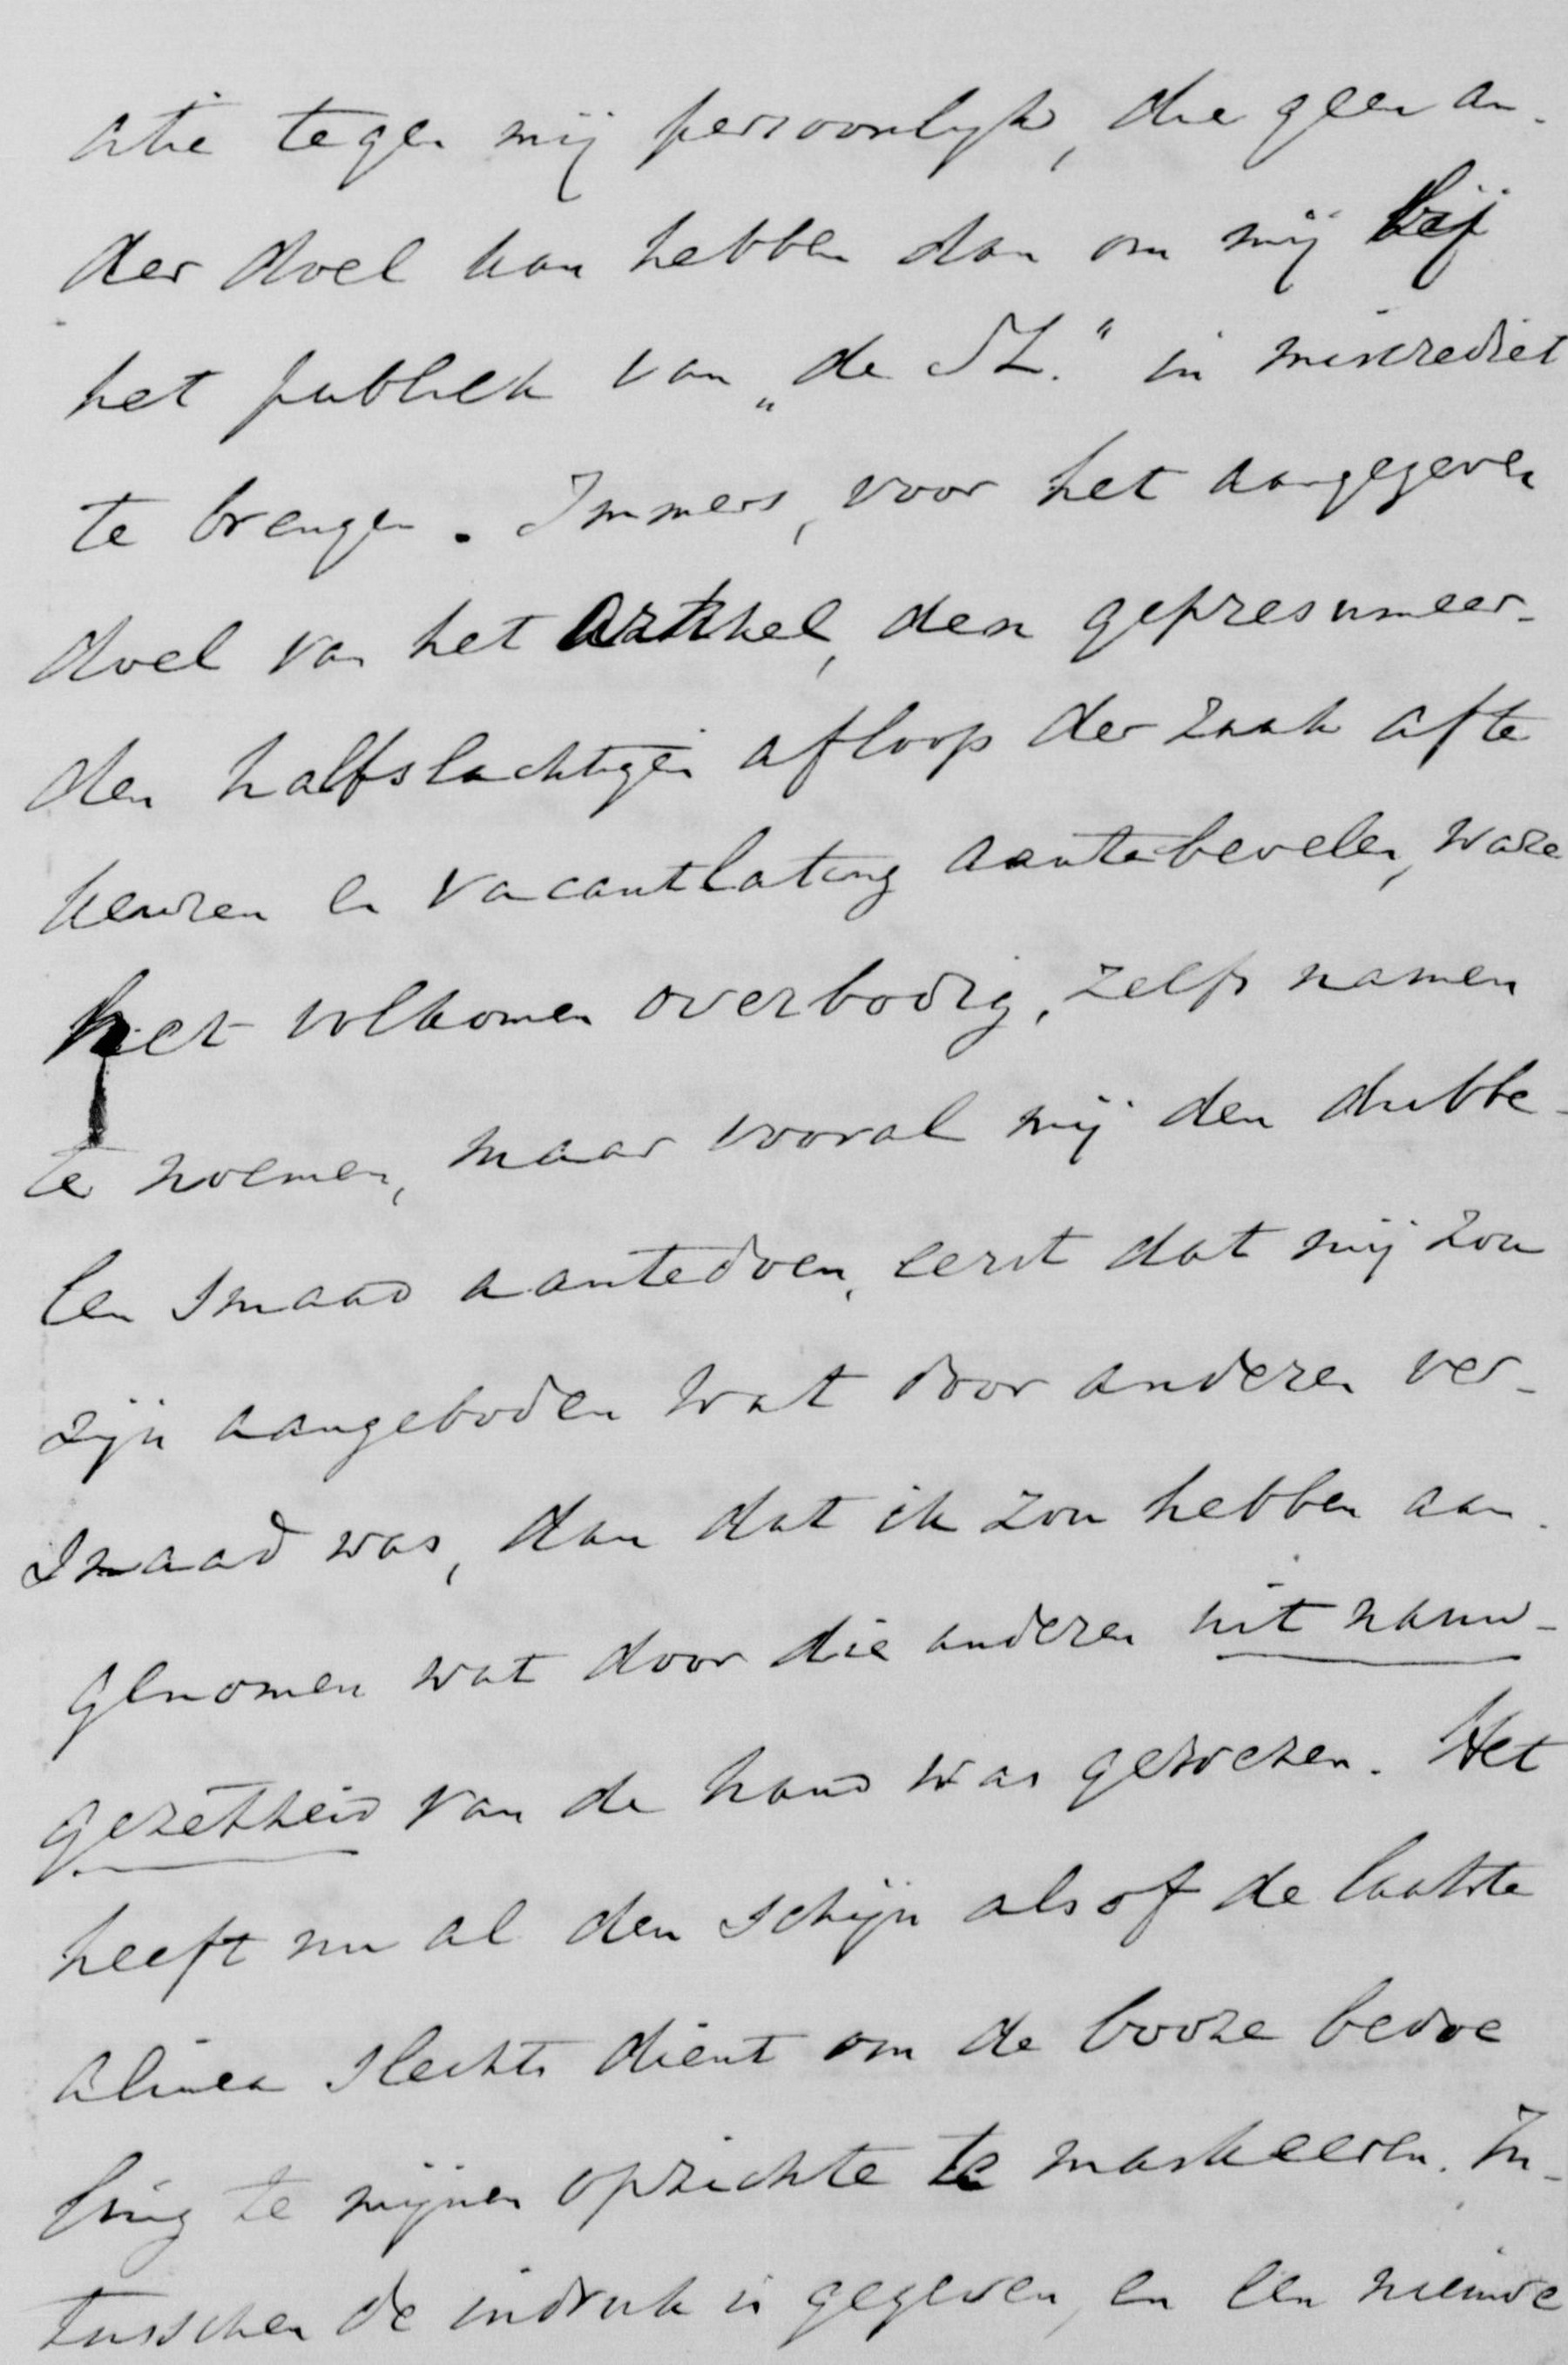 atie tegen mij persoonlijk, die geen an-
der doel kan hebben dan om mij bij
het publiek van „de Sl." in miscrediet
te brengen. Immers, voor het aangegeven
doel van het artikel, den gepresumeer-
den halfslachtigen afloop der zaak afte
keuren en vacantlating aantebevelen, ware
het volkomen overbodig, zelfs namen
te noemen, maar vooral mij den dubbe-
len smaad aantedoen, eerst dat mij zou
zijn aangeboden wat door anderen ver-
smaad was, dan dat ik zou hebben aan-
genomen wat door die anderen uit nauw-
gezetheid van de hand was gewezen. Het
heeft nu al den schijn alsof de laatste
alinea slechts dient om de booze bedoe
ling te mijnen opzichte te maskeeren. In-
tusschen de indruk is gegeven, en een nieuwe